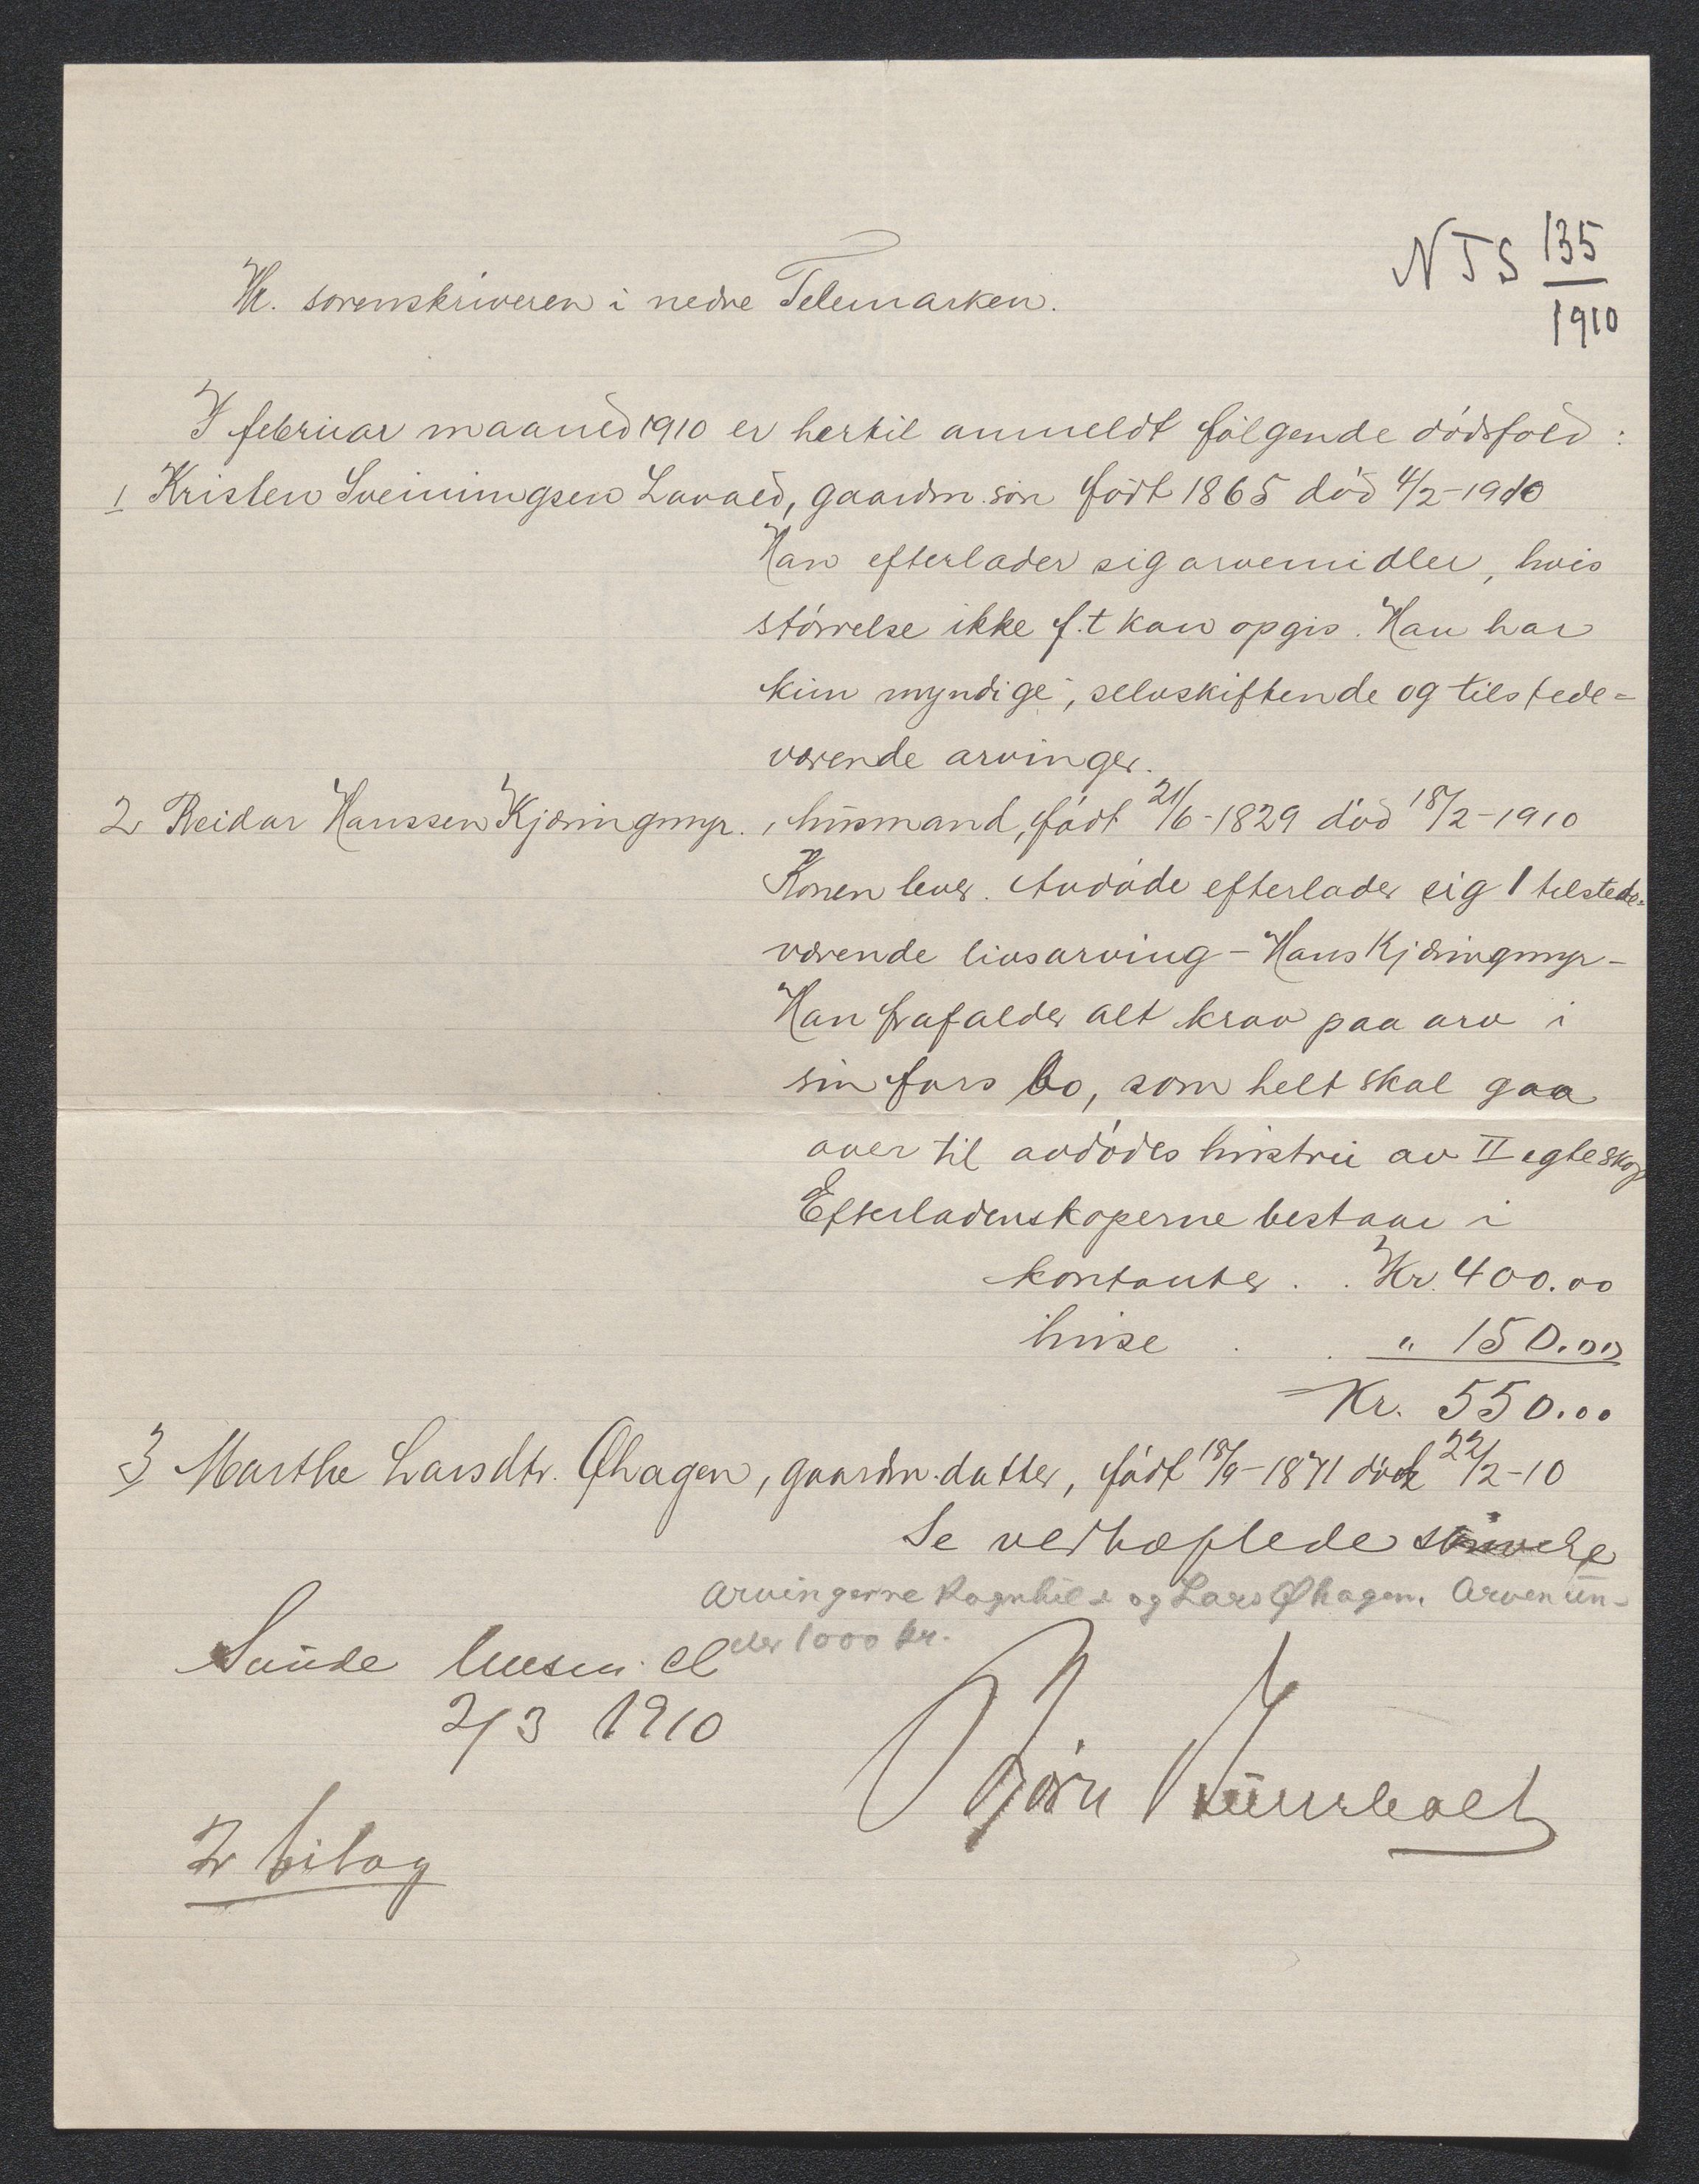 NTS 135/1910
Hr. sorenskriveren i nedre Telemarken.
I februar maaned 1910 er hertil anmeldt følgende dødsfald:
1 Kristen Sveinungsen Lavaed, gaardm. søn født 1865 død 4/2-1910
Han efterlader sig arvemidler, hvis
størrelse ikke f.t kan opgis. Han har
kun myndige, selvskiftende og tilstede=
værende arvinger.
2 Reidar Hanssen Kjæringmyr., husmand, født 21/6-1829 død 18/2-1910
Konen lever. Avdøde efterlader sig 1 tilstede=
værende livsarving - Hans Kjæringmyr -
Han frafalder alt krav paa arv i
sin fars bo, som helt skal gaa
over til avdødes hustru av II egteskap
Efterladenskaperne bestaar i
kontanter . . Kr. 400.00
huse . . " 150.00
Kr. 550.00
3 Marthe Larsdtr. Øhagen, gaardm. datter, født 18/9-1871 død 22/2-10
Se vedhæftede
Arvingerne Ragnhild og Lars Øhagen. Arven un-
der 1000 kr.
Sunde
2/3 1910
Bjørn
2 bilag